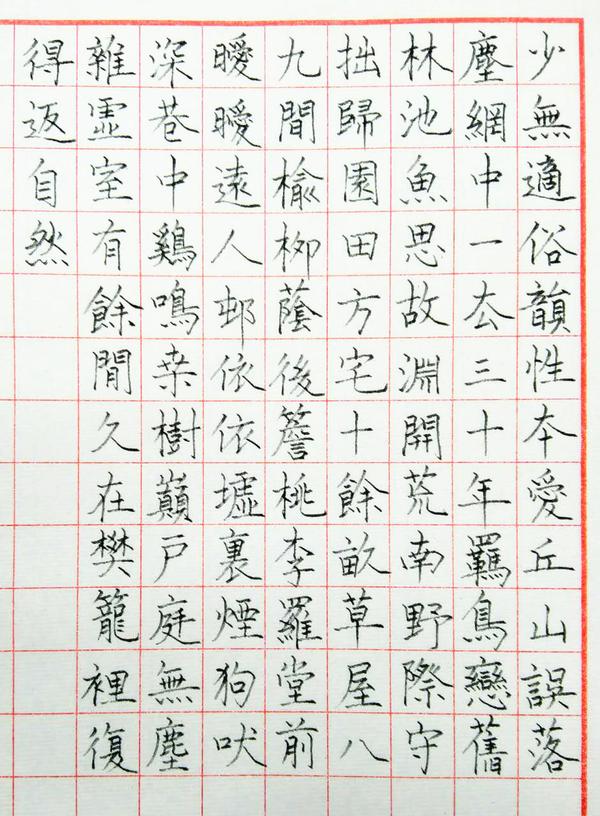 少無適俗韻性本愛丘山誤落
塵網中一厺三十年羈鳥戀舊
林池魚思故淵開荒南野際守
拙歸園田方宅十餘畝草屋八
九間榆柳蔭後簷桃李羅堂前
曖曖遠人邨依依墟裏煙狗吠
深巷中鷄鳴桒樹巔戶庭無塵
雜虛室有餘閒久在樊籠裡復
得返自然